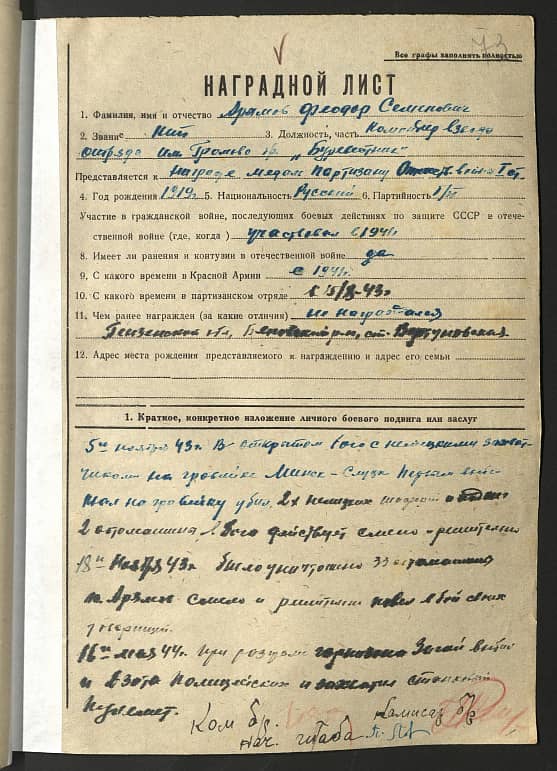 73
Все графы заполнять полностью
НАГРАДНОЙ ЛИСТ
1. Фамилия, имя и отчество Арямов Феодор Семенович
2. Звание 3. Должность, часть Командир взвода
отряда им Громова бр. „Буревестник"
Представляется к награде медаль партизану Отечест. войны I ст.
4. Год рождения 1919г. 5. Национальность Русский 6. Партийность б/п
Участие в гражданской войне, последующих боевых действиях по защите СССР в отече-
ственной войне (где, когда) участвовал с 1941г
8. Имеет ли ранения и контузии в отечественной войне да
9. С какого времени в Красной Армии с 1941г.
10. С какого времени в партизанском отряде с 43г.
11. Чем ранее награжден (за какие отличия) не награждался
Пензенская обл, ст. Вертуновская
12. Адрес места рождения представляемого к награждению и адрес его семьи
1. Краткое, конкретное изложение личного боевого подвига или заслуг
5го ноября 43г. В открытом бою с немецкими захват-
чиками на гравийке Минск-Слуцк Первым
на гравийку убил 2х немецких
2 автомашины В бою действует смело-решительно
18го Ноября 43г. было уничтожено 33 автомашины
Арямов смело и решительно повел в бой своих
товарищей.
16го мая 44г. При
и взята Полицейских и захватил станковый
Пулемет.
Ком бр. Комиссар бр
Нач. штаба